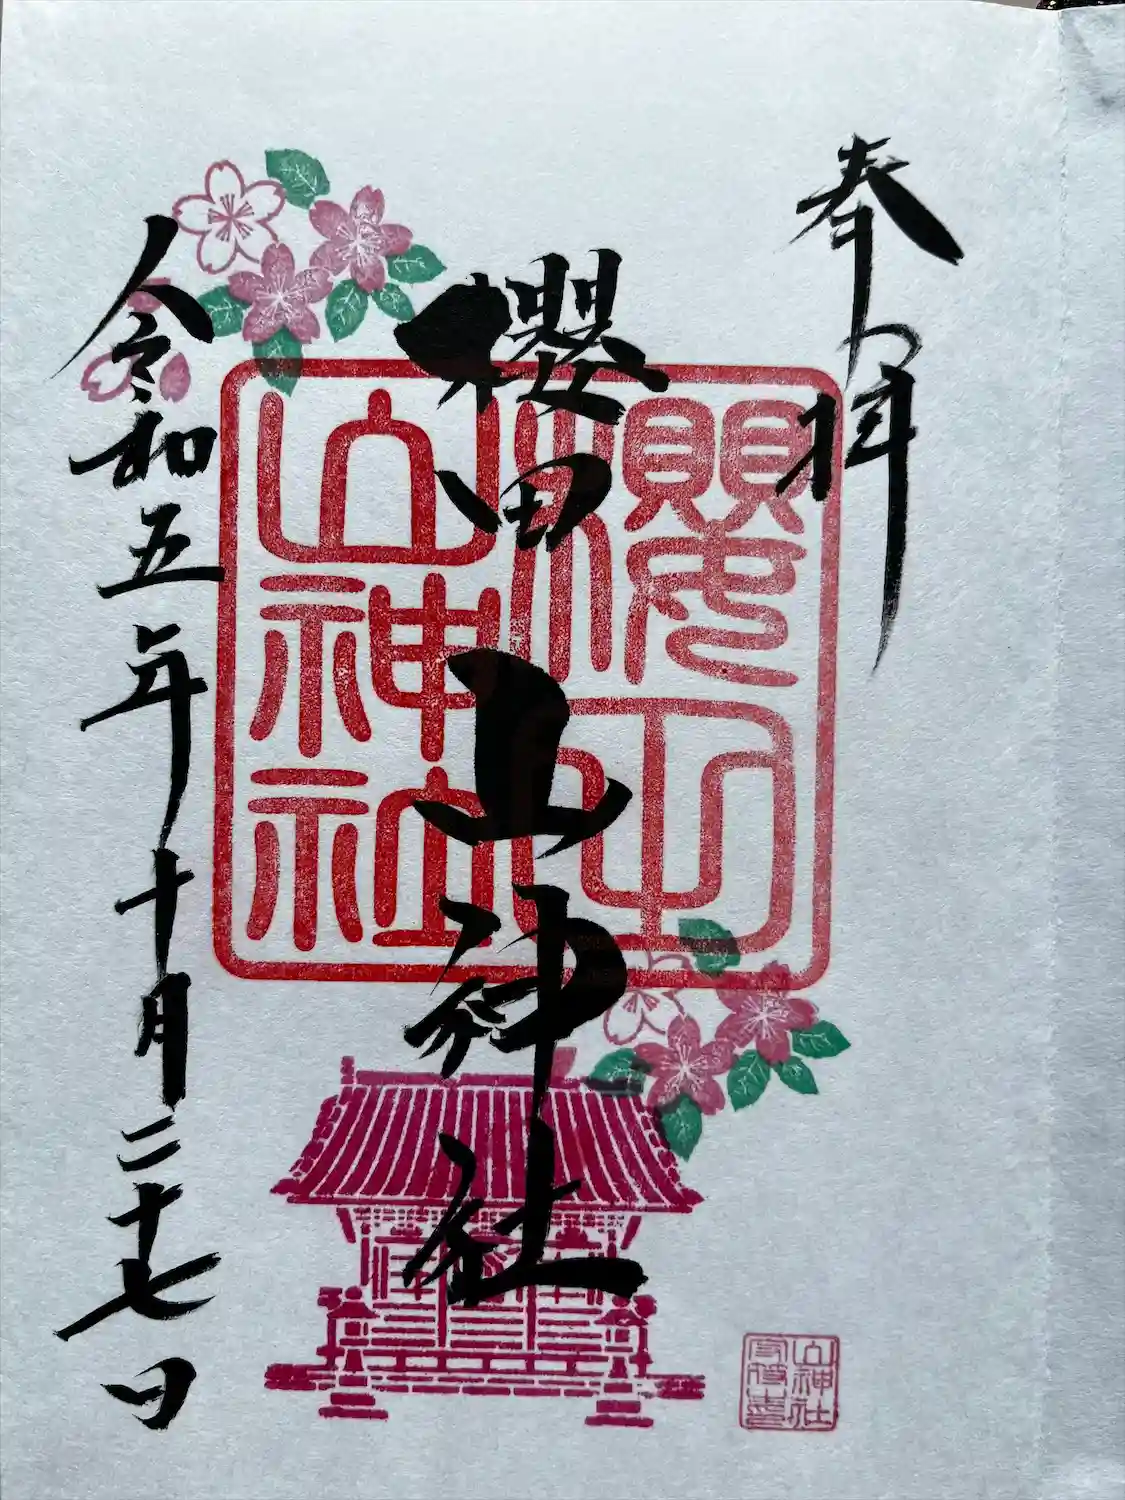 奉拝
櫻田山神社
櫻田
山神社
令和五年十月二十七日
山神社